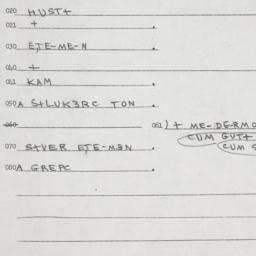 020 HUST+
021 +
030 ETE-ME-N
040 +
041 KAM
050A S+LUK3RC TON
060
061) + ME-DERMO
CUM GUT+
CUM S
070 S+VER ETE-M3N
080A GREPC